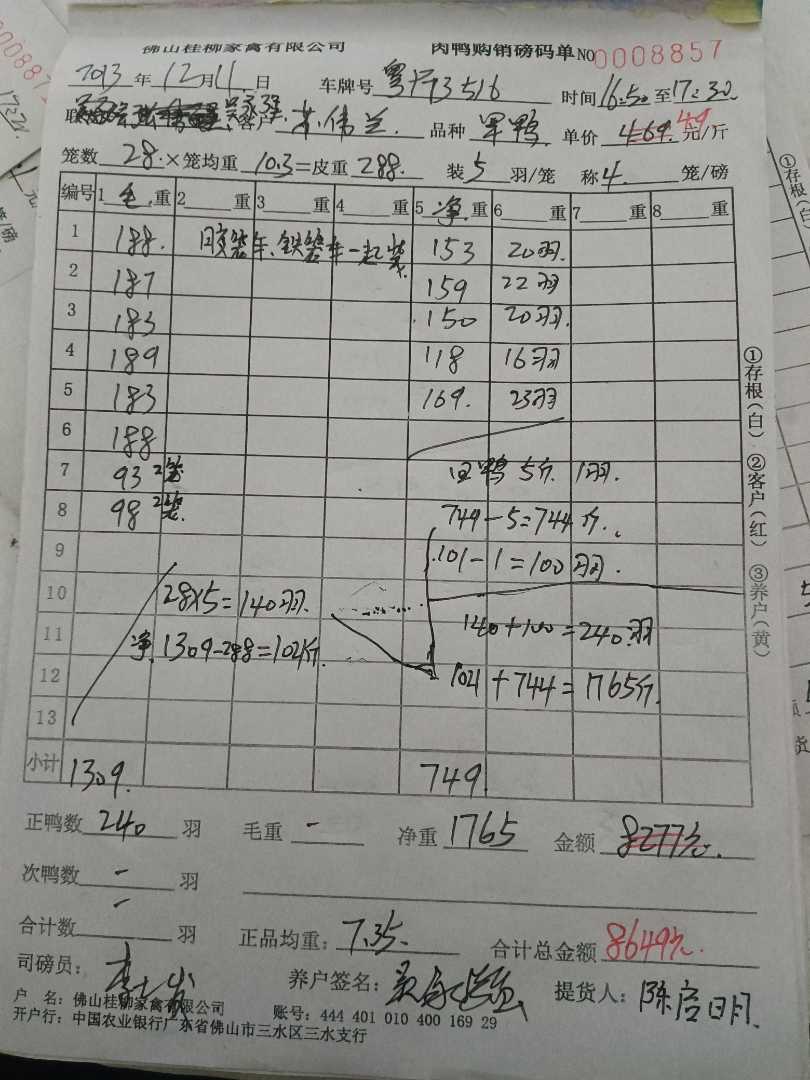 佛山桂柳家禽有限公司 肉鸭购销磅码单 NO 0008857
2013年12月11日 车牌号 时间16:50至17:30
客户 苏伟兰 品种 单价 4.69 4.9 元/斤
笼数 28 ×笼均重 10.3 =皮重 288. 装 5 羽/笼 称 4 笼/磅
编号 1 毛 重 2 重 3 重 4 重 5 净 重 6 重 7 重 8 重
1 188. 胶笼车、铁笼车一起装 153 20羽.
2 187 159 22羽
3 183 150 20羽.
4 189 118 16羽
5 183 169. 23羽
6 188
7 93 2笼 鸭5斤 1羽.
8 98 2笼. 749-5=744斤.
9 101-1=100羽.
10 28×5=140羽.
11 净 1309-288=1021斤. 140+100=240羽
12 1021+744=1765斤
13
小计 1309. 749
正鸭数 240 羽 毛重 - 净重 1765 金额 8277元.
次鸭数 - 羽
合计数 - 羽 正品均重: 7.35. 合计总金额 8649元.
司磅员: 养户签名: 提货人: 陈启明
户 名: 佛山桂柳家禽有限公司 账号: 444 401 010 400 169 29
开户行: 中国农业银行广东省佛山市三水区三水支行
①存根(白) ②客户(红) ③养户(黄)
①存根(白